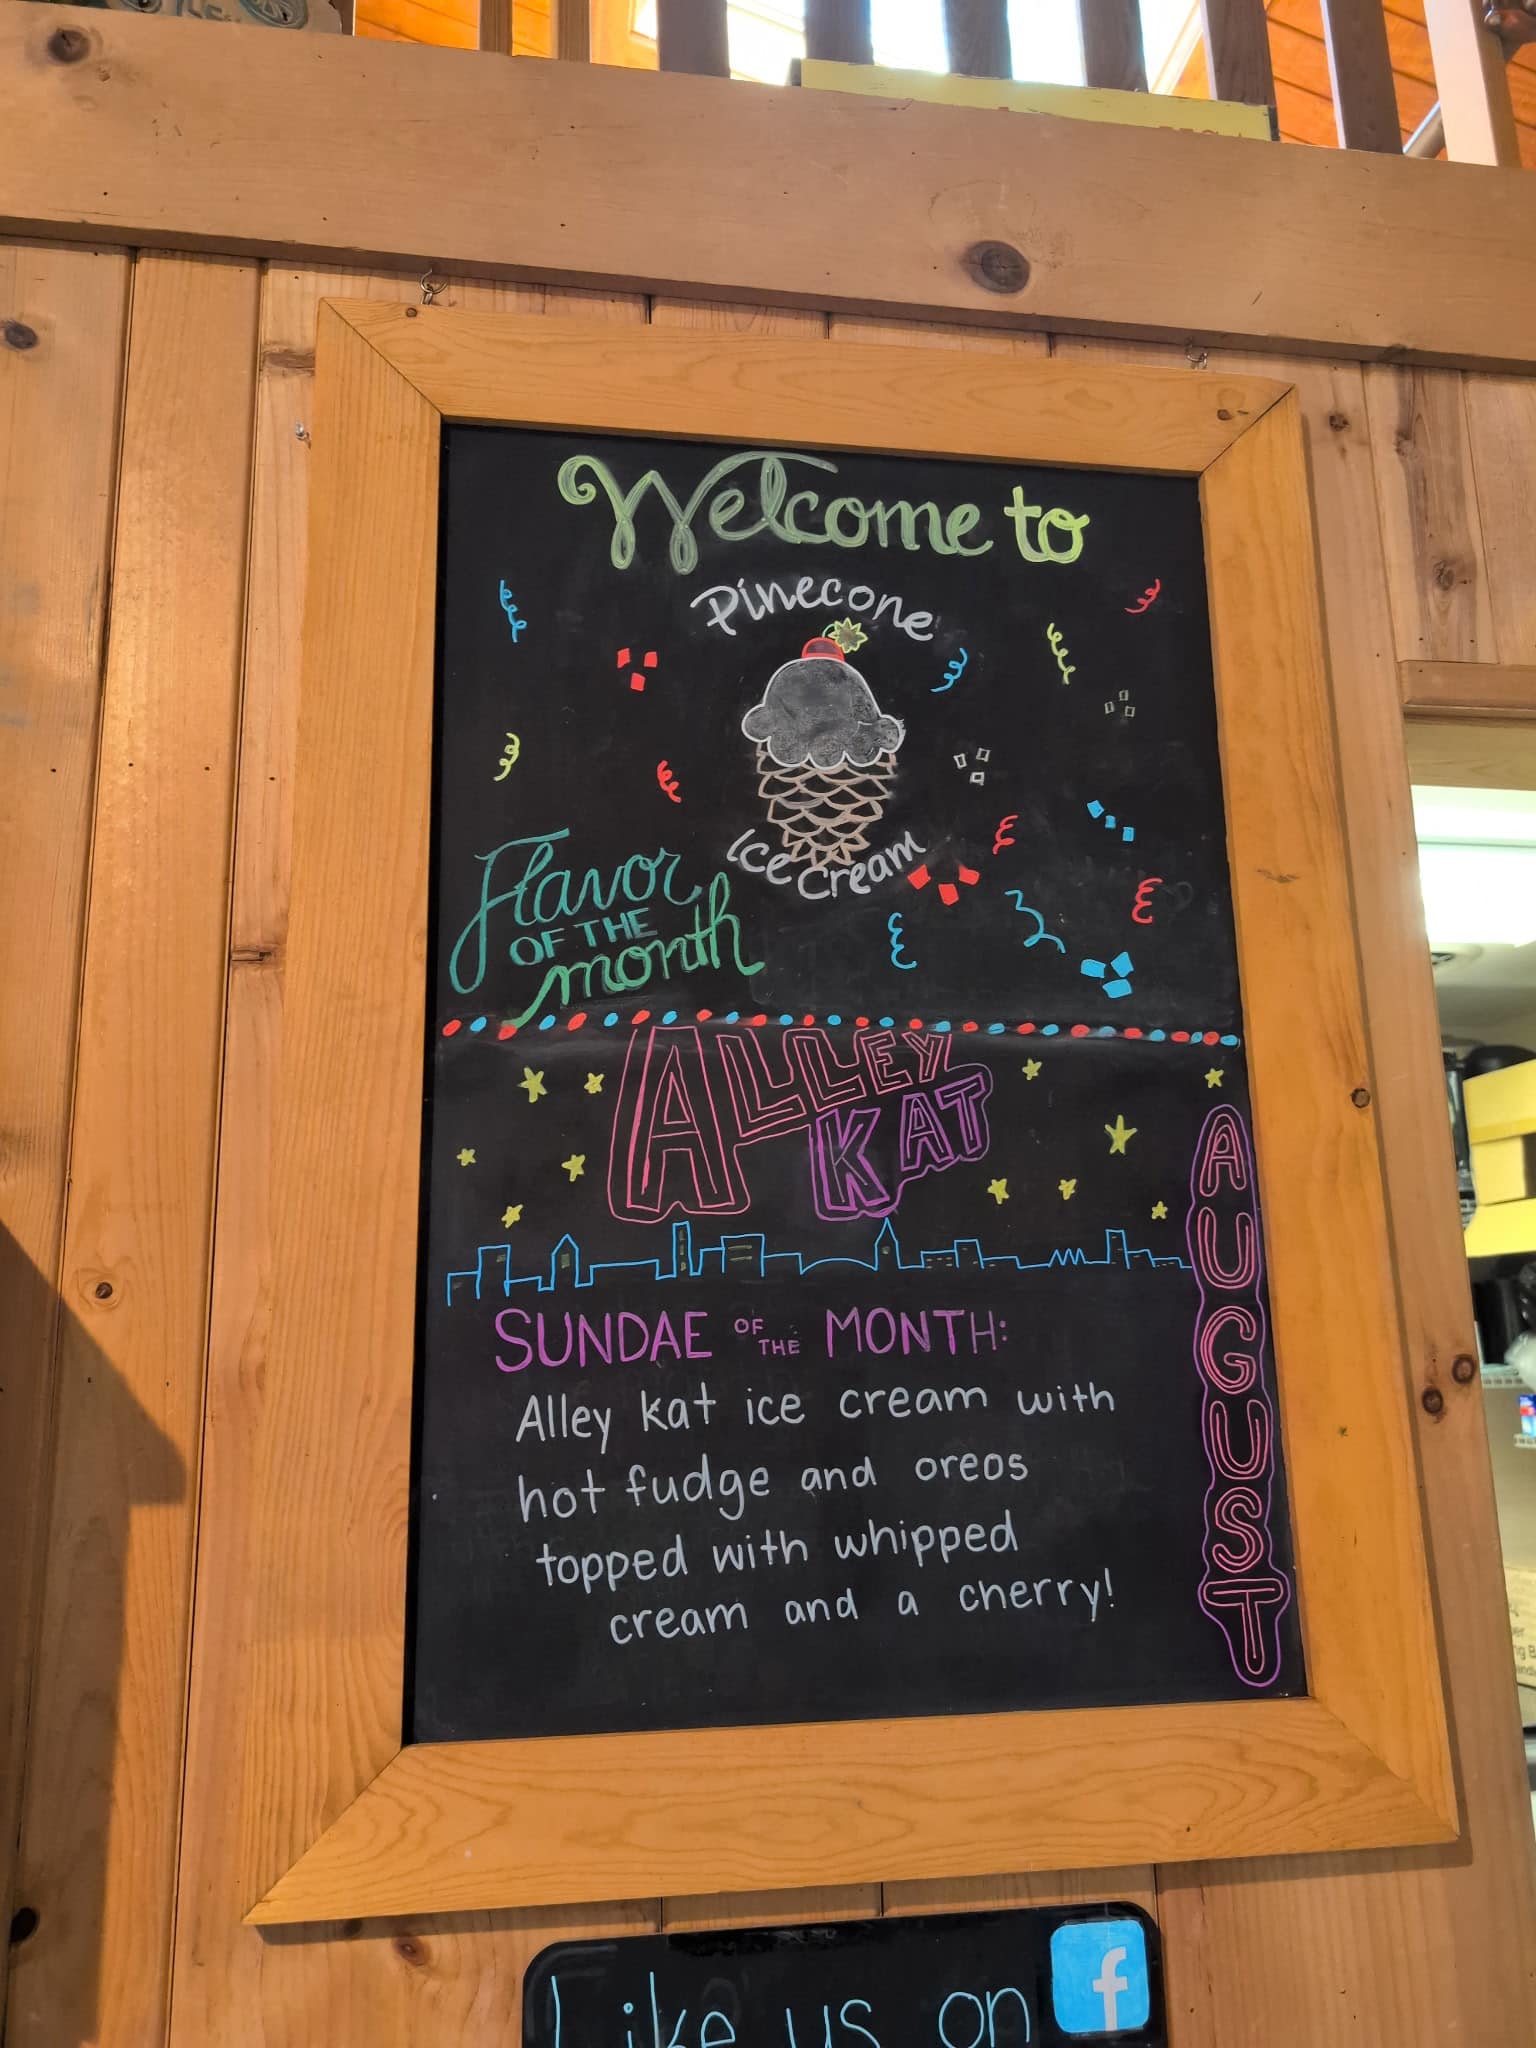 Welcome to
Pinecone
Ice Cream
Flavor
OF THE
month
ALLEY
KAT
AUGUST
SUNDAE OF THE MONTH:
Alley kat ice cream with
hot fudge and oreos
topped with whipped
cream and a cherry!
Like us on f